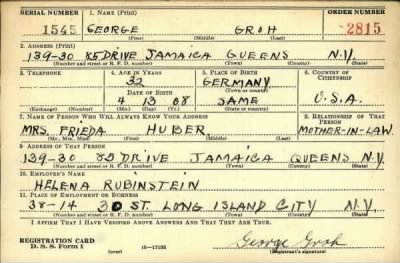 SERIAL NUMBER 1. NAME (Print) ORDER NUMBER
1545 GEORGE GROH 2815
(First) (Middle) (Last)
2. ADDRESS (Print)
139-30 85 DRIVE JAMAICA QUEENS N.Y.
(Number and street or R. F. D. number) (Town) (County) (State)
3. TELEPHONE 4. AGE IN YEARS 5. PLACE OF BIRTH 6. COUNTRY OF CITIZENSHIP
32 GERMANY
(Town or county)
DATE OF BIRTH
4 13 08 SAME U.S.A.
(Exchange) (Number) (Mo.) (Day) (Yr.) (State or country)
7. NAME OF PERSON WHO WILL ALWAYS KNOW YOUR ADDRESS 8. RELATIONSHIP OF THAT PERSON
MRS. FRIEDA HUBER MOTHER-IN-LAW
(Mr., Mrs., Miss) (First) (Middle) (Last)
9. ADDRESS OF THAT PERSON
139-30 85 DRIVE JAMAICA QUEENS N.Y.
(Number and street or R. F. D. number) (Town) (County) (State)
10. EMPLOYER'S NAME
HELENA RUBINSTEIN
11. PLACE OF EMPLOYMENT OR BUSINESS
38-14 30 ST. LONG ISLAND CITY N.Y.
(Number and street or R. F. D. number) (Town) (County) (State)
I AFFIRM THAT I HAVE VERIFIED ABOVE ANSWERS AND THAT THEY ARE TRUE.
REGISTRATION CARD
D. S. S. FORM 1 (over) 16-17105
George Groh
(Registrant's signature)